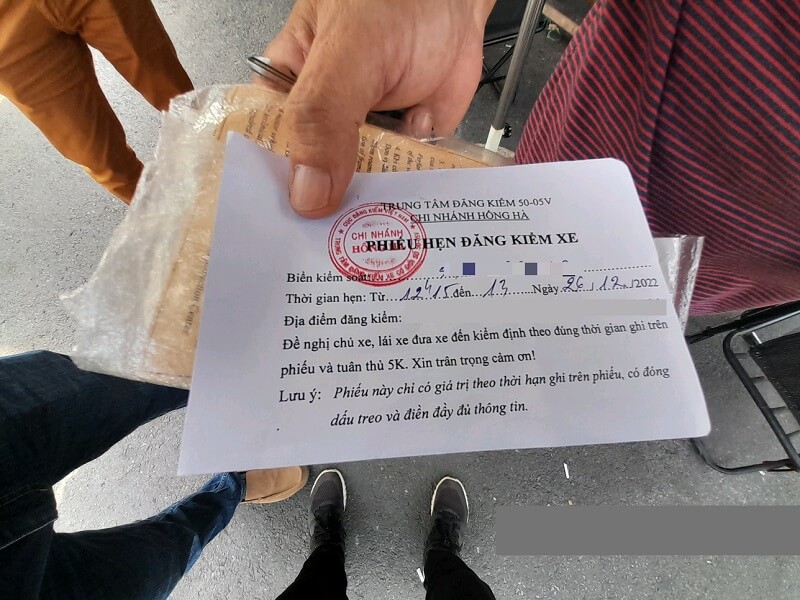 TRUNG TÂM ĐĂNG KIỂM 50-05V
CHI NHÁNH HỒNG HÀ
PHIẾU HẸN ĐĂNG KIỂM XE
CHI NHÁNH
HỒNG HÀ
Biển kiểm soát:
Thời gian hẹn: Từ 12h15 đến 13 Ngày 26/12/2022
Địa điểm đăng kiểm:
Đề nghị chủ xe, lái xe đưa xe đến kiểm định theo đúng thời gian ghi trên
phiếu và tuân thủ 5K. Xin trân trọng cảm ơn!
Lưu ý: Phiếu này chỉ có giá trị theo thời hạn ghi trên phiếu, có đóng
dấu treo và điền đầy đủ thông tin.